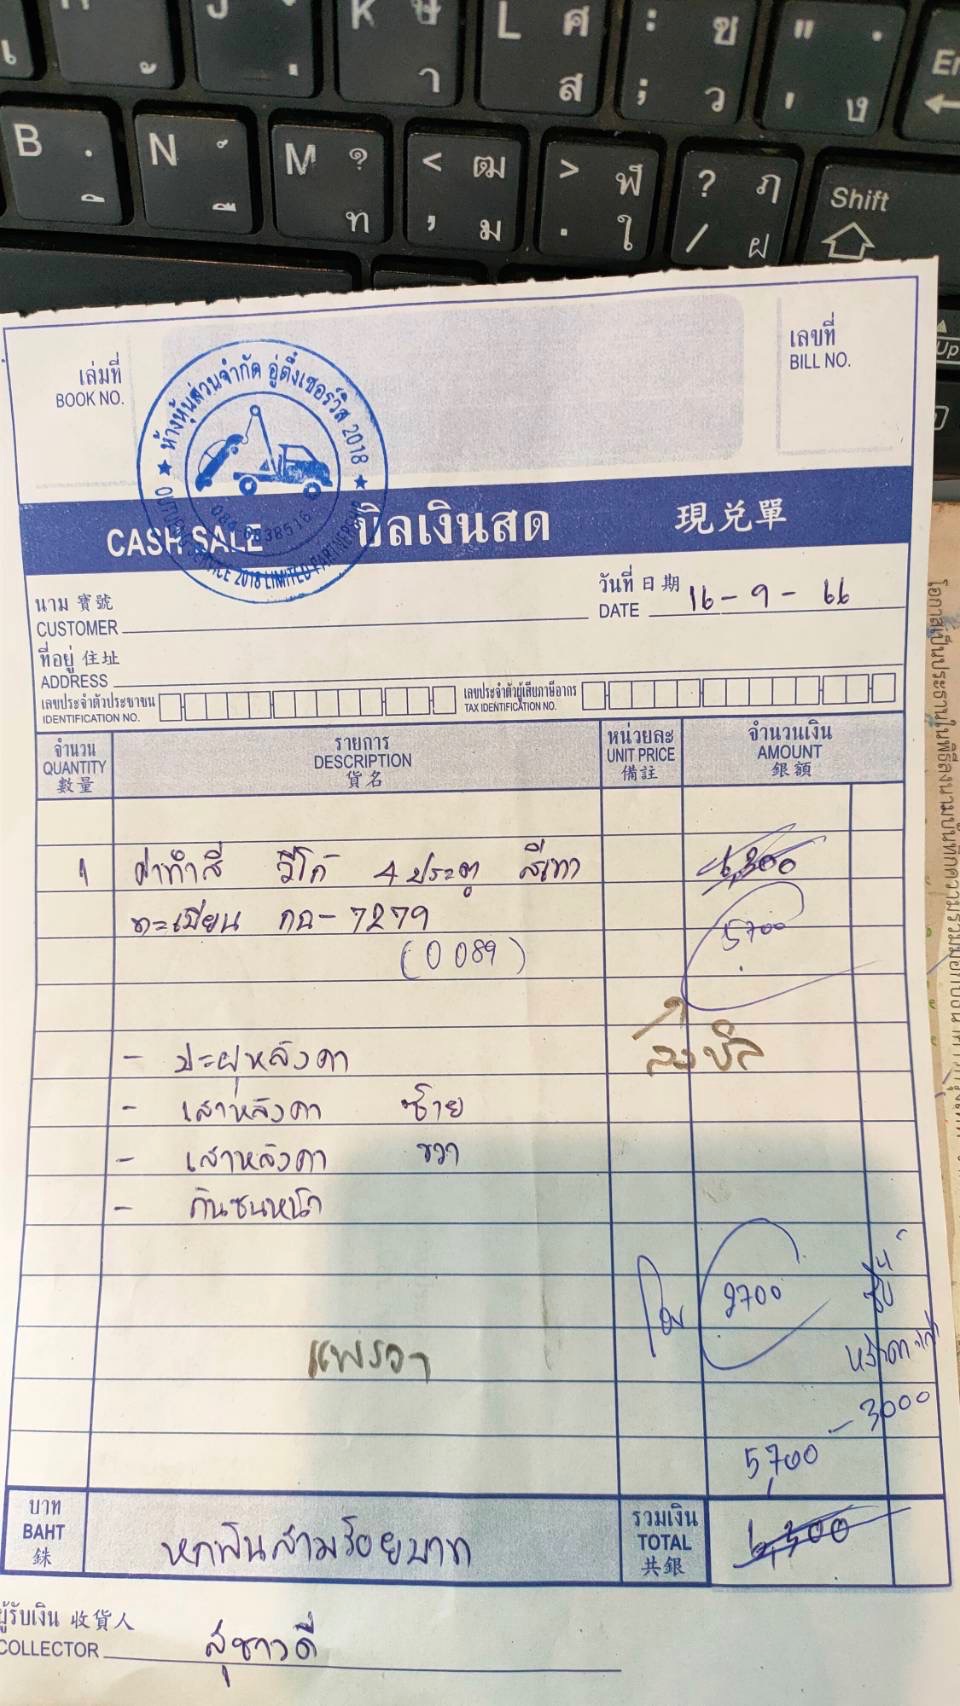 K ษ า
L ศ ส
: ซ ; ว
" . ' ง
B . ิ
N ์ ื
M ? ท
< ฒ , ม
> ฬ . ใ
? ฦ / ฝ
Shift
เล่มที่
BOOK NO.
เลขที่
BILL NO.
ห้างหุ้นส่วนจำกัด อู่ตึ๋งเซอร์วิส 2018
SERVICE 2018 LIMITED PARTNERSHIP
CASH SALE บิลเงินสด 現兌單
นาม 寶號
CUSTOMER
วันที่ 日期
DATE 16-9-66
ที่อยู่ 住址
ADDRESS
เลขประจำตัวประชาชน
IDENTIFICATION NO.
เลขประจำตัวผู้เสียภาษีอากร
TAX IDENTIFICATION NO.
จำนวน
QUANTITY
數量
รายการ
DESCRIPTION
貨名
หน่วยละ
UNIT PRICE
備註
จำนวนเงิน
AMOUNT
銀額
1 ค่าทำสี วีโก้ 4 ประตู สีเทา 6,300
ทะเบียน กฉ-7279 5700
(0089)
ลงบิล
- ปะผุหลังคา
- เสาหลังคา ซ้าย
- เสาหลังคา ขวา
- กันชนหน้า
โอน 2700
ซื้อ
หลังคาเก่า
แพรวา
- 3000
5,700
บาท
BAHT
銖
หกพันสามร้อยบาท
รวมเงิน
TOTAL
共銀
6,300
ผู้รับเงิน 收貨人
COLLECTOR สุชาวดี